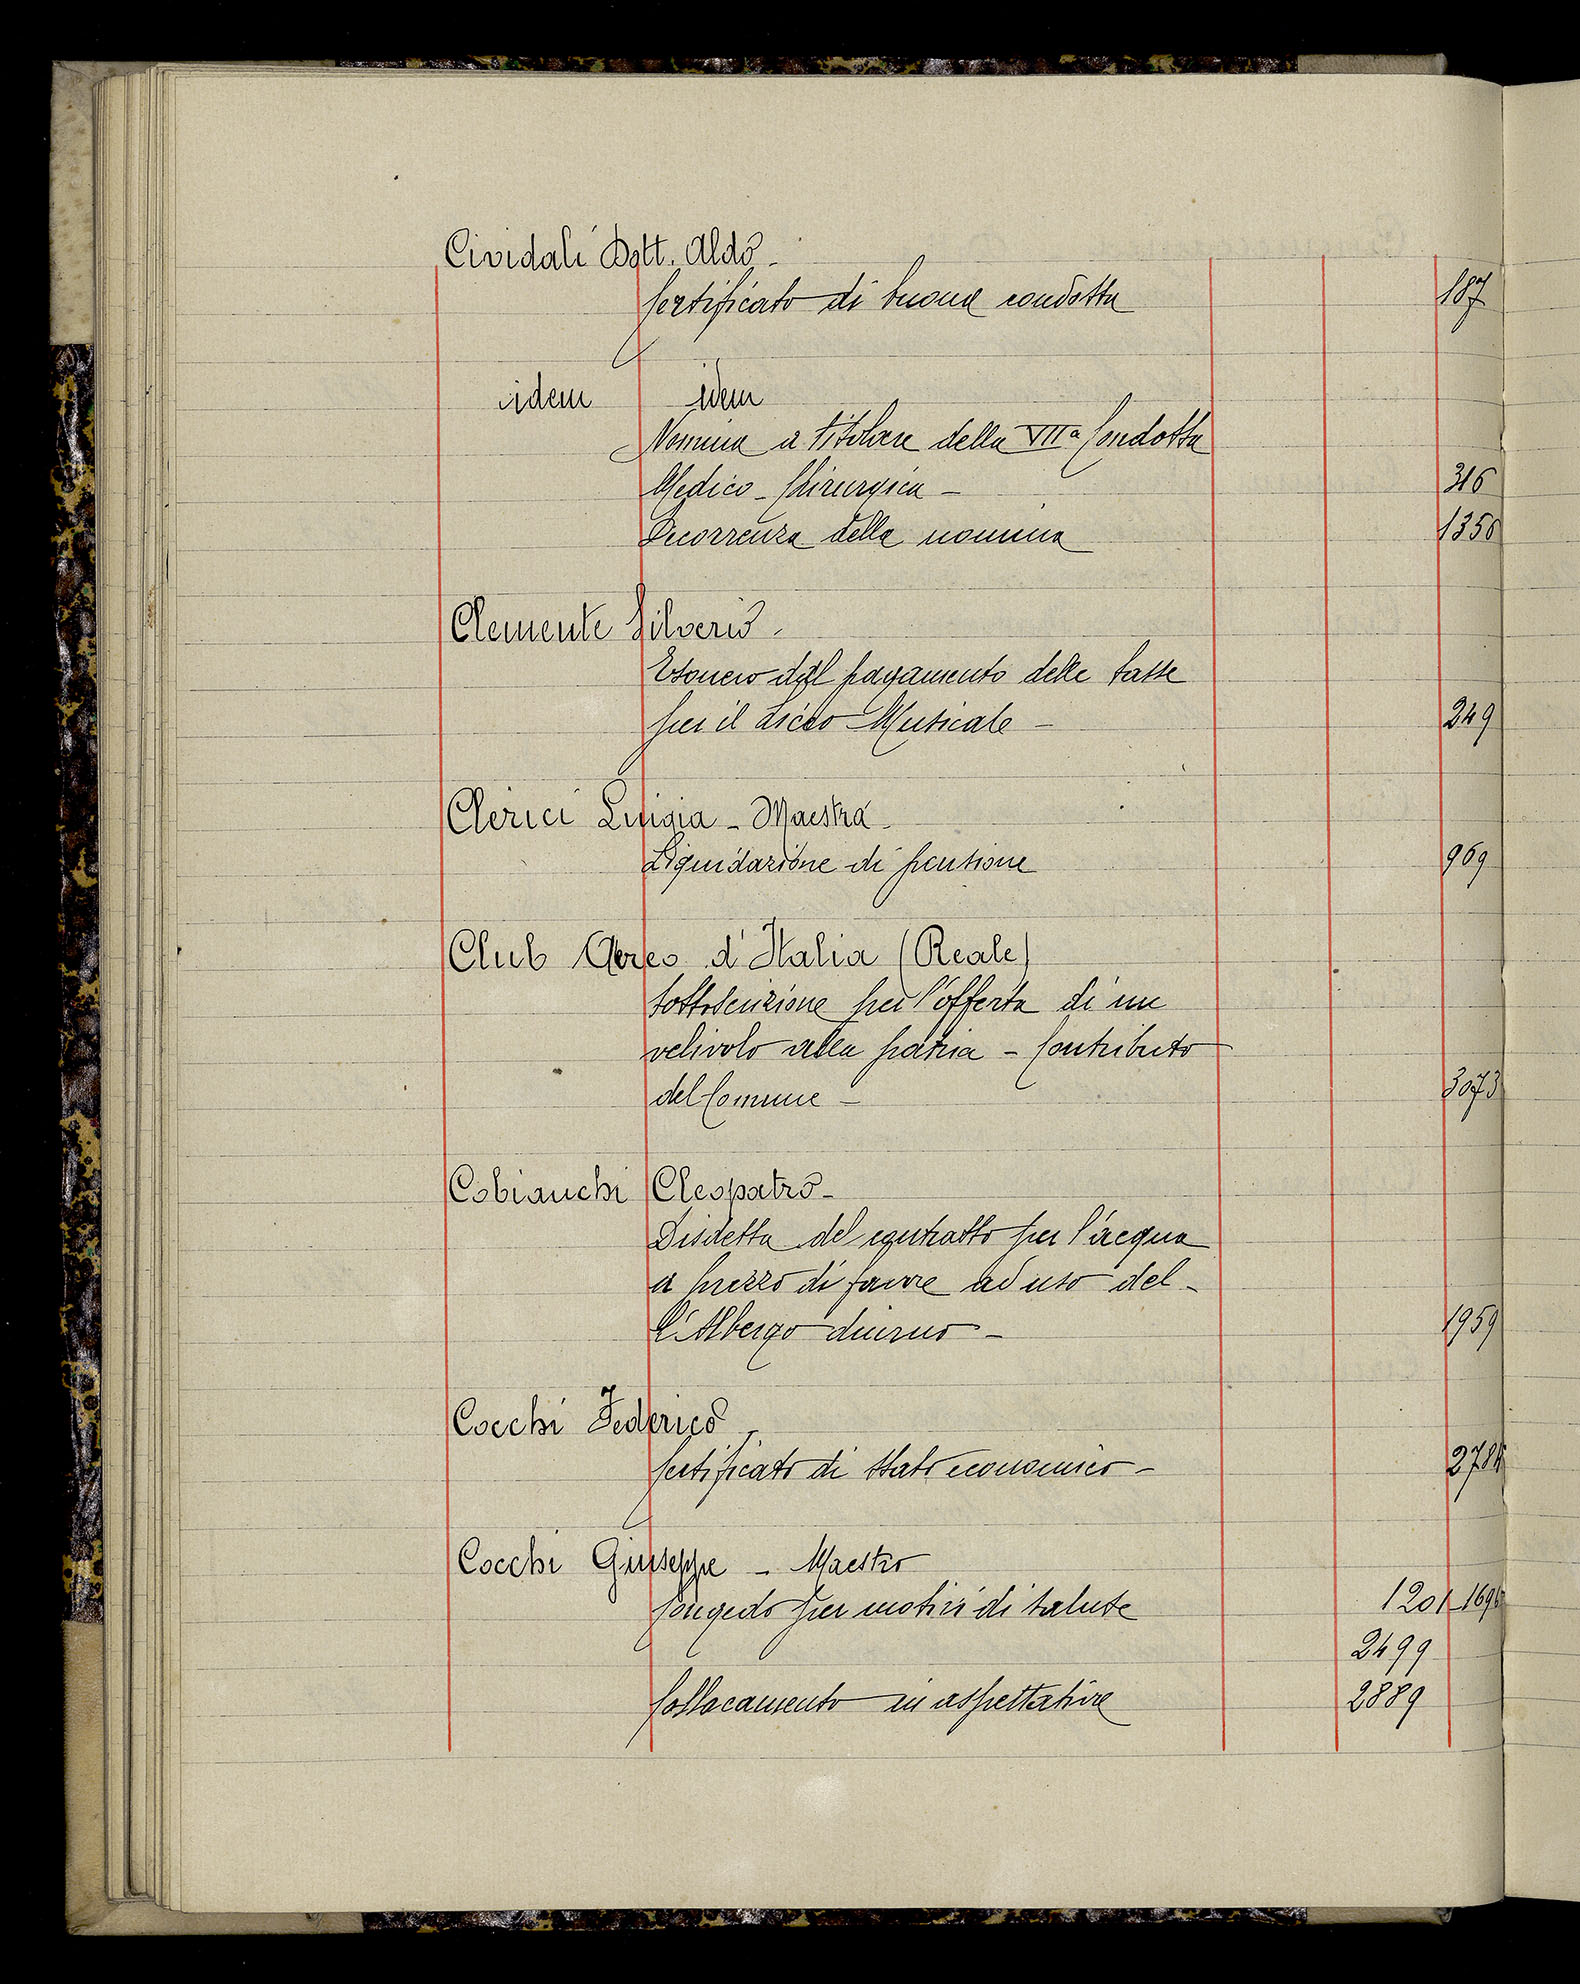 Cividali Dott. Aldo -
Certificato di buona condotta 187
idem idem
Nomina a titolare della VIIa Condotta
Medico - Chirurgica - 316
Decorrenza della nomina 1356
Clemente Silverio -
Esonero dal pagamento delle tasse
per il Liceo Musicale - 249
Clerici Luigia - Maestra -
Liquidazione di pensione 969
Club Aereo d'Italia (Reale)
Sottoscrizione per l'offerta di un
velivolo alla patria - Contributo
del Comune - 3073
Cobianchi Cleopatro -
Disdetta del contratto per l'acqua
a prezzo di favore ad uso del -
l'Albergo diurno - 1959
Cocchi Federico -
Certificato di stato economico - 2784
Cocchi Giuseppe - Maestro
Congedo per motivi di salute 1201 - 1696
2499
Collocamento in aspettativa 2889